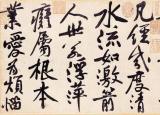 凡經幾度清
水流如激箭
人世若浮萍
癡屬根本
業愛為煩惱